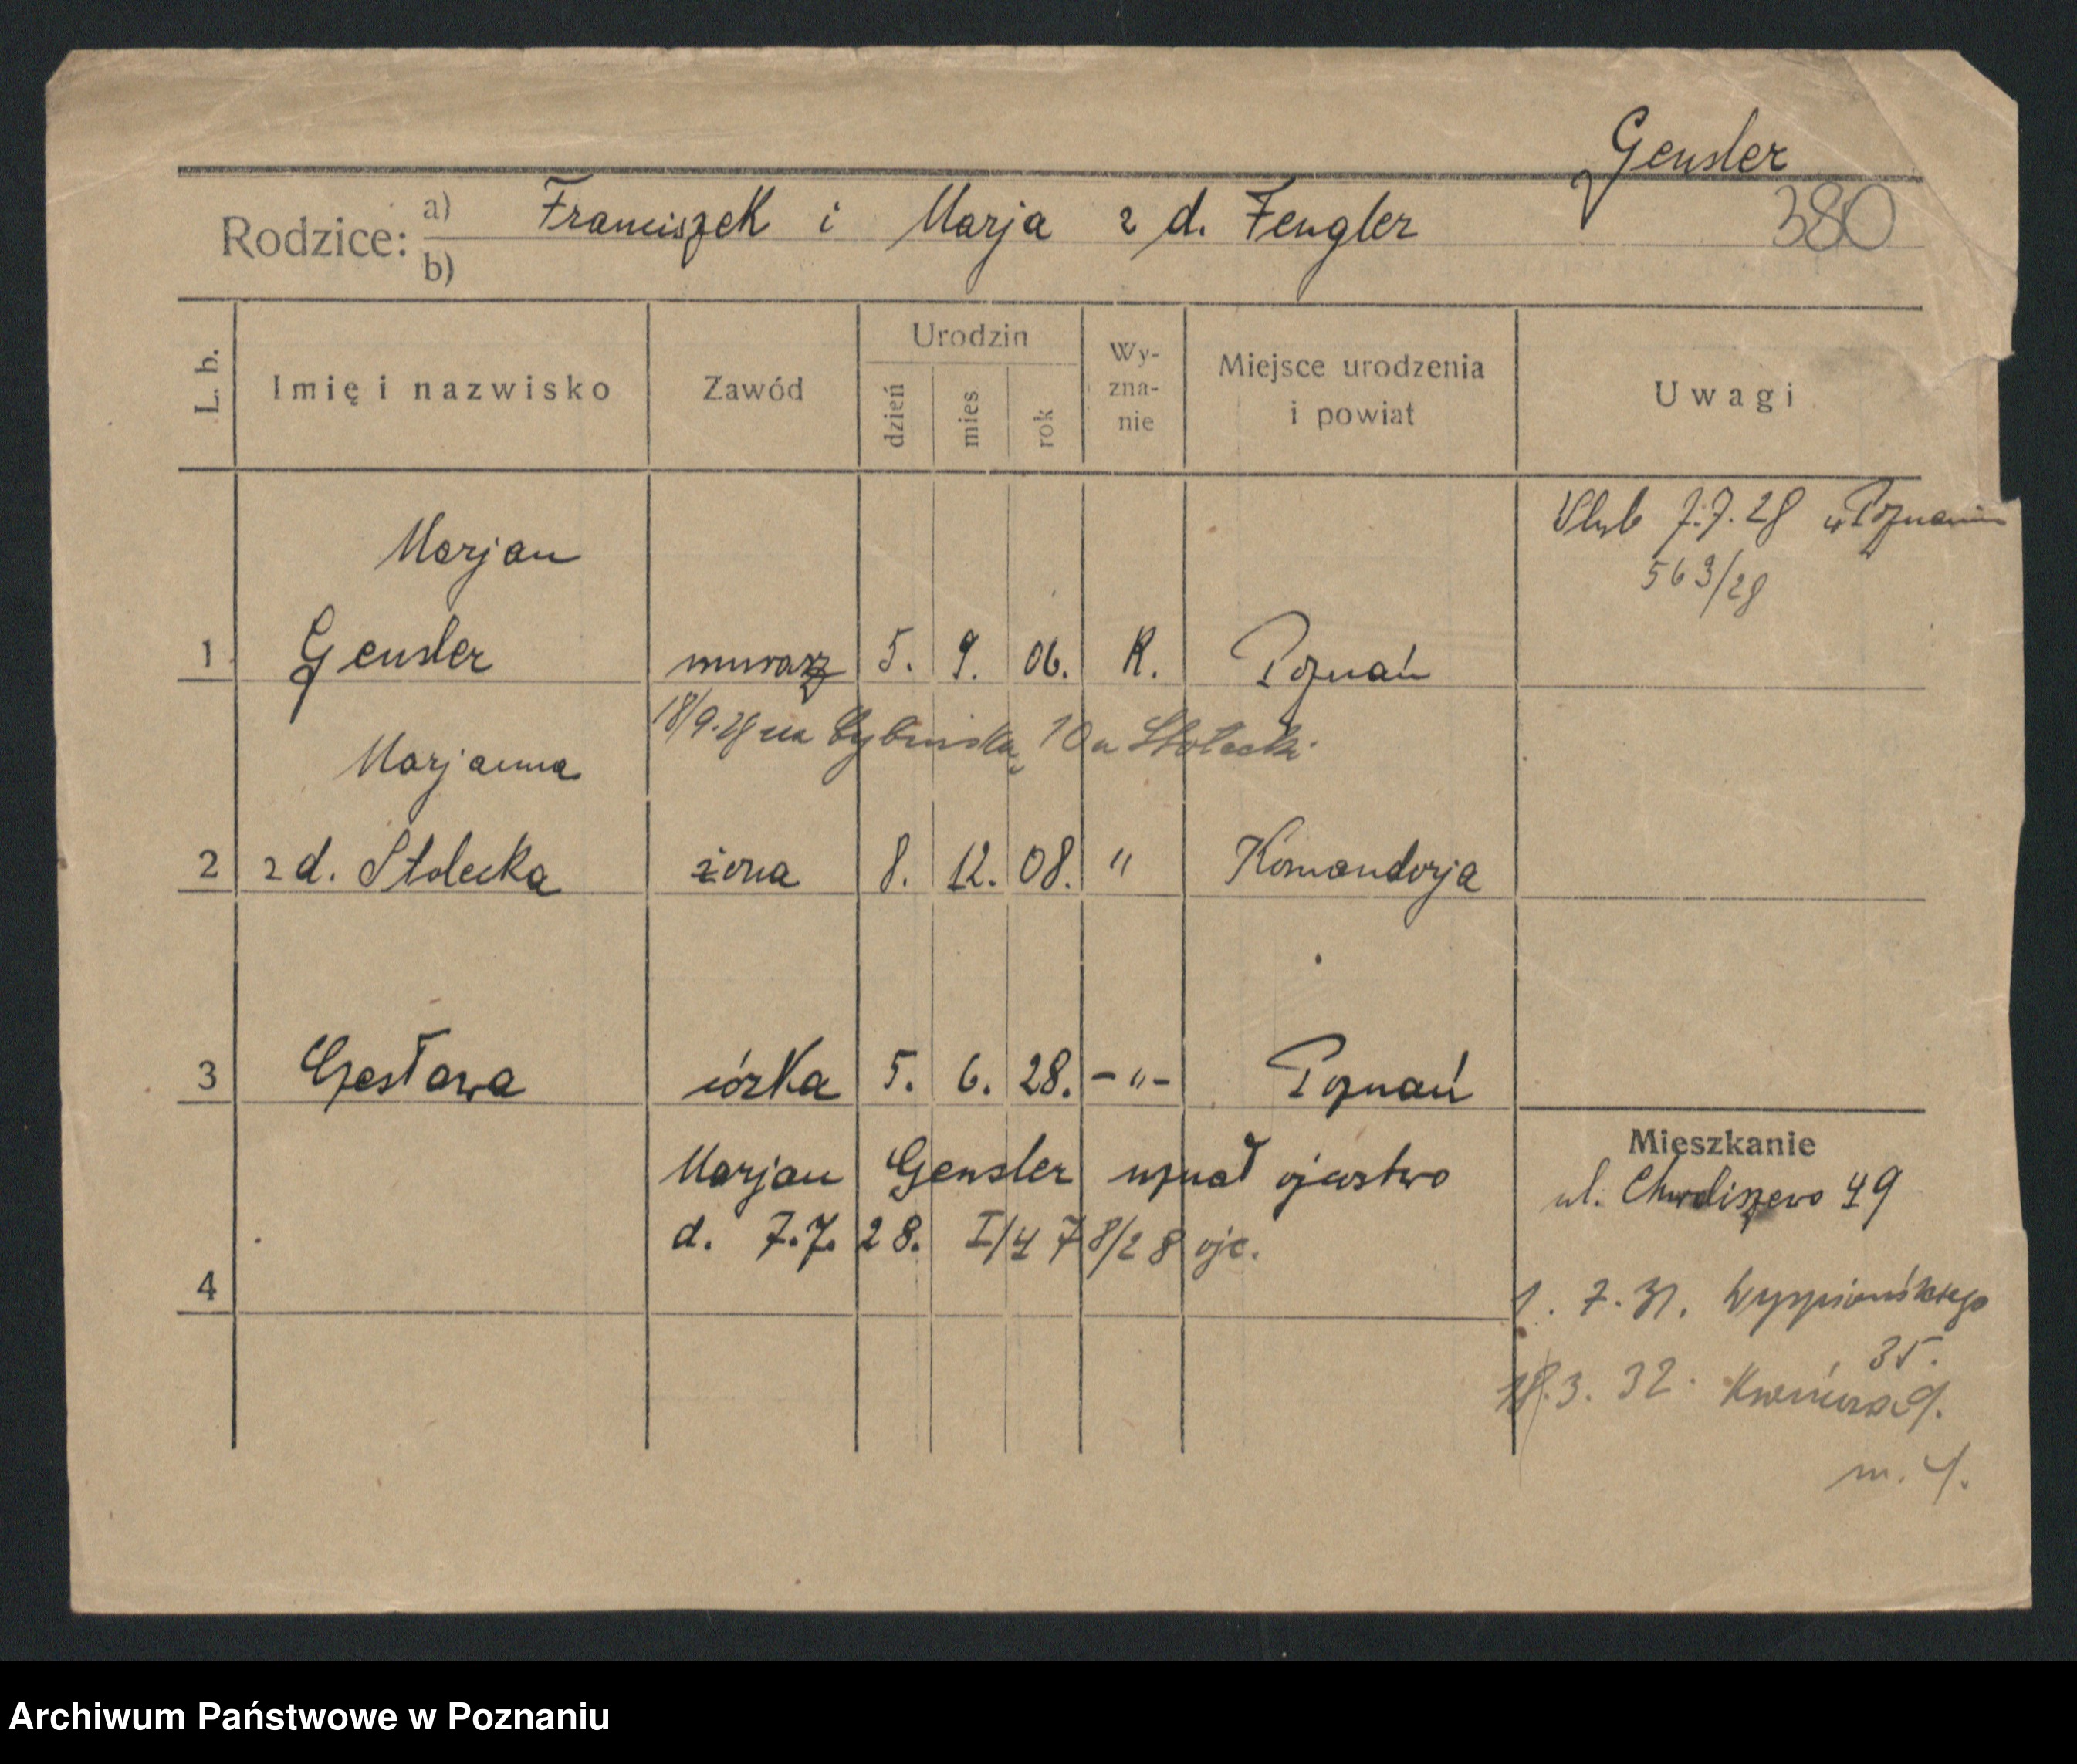 Gensler
380
Rodzice: a) Franciszek i Marja z d. Fengler
b)
L. b.
Imię i nazwisko
Zawód
Urodzin
dzień
mies
rok
Wy-
zna-
nie
Miejsce urodzenia
i powiat
Uwagi
Ślub 7.7.28 w Poznaniu
563/28
Marjan
1 Gensler murarz 5. 9. 06. K. Poznań
18/9.28 na Cybińską 10 u Stołecki
Marjanna
2 z d. Stolecka żona 8. 12. 08. " Komandorja
3 Czesława córka 5. 6. 28. -"- Poznań
Marjan Gensler uznał ojcostwo
d. 7.7.28. I/478/28 ojc.
4
Mieszkanie
ul. Chwaliszewo 49
1. 7. 31. Wyspiańskiego
35.
18.3. 32. 9.
m. 4.
Archiwum Państwowe w Poznaniu